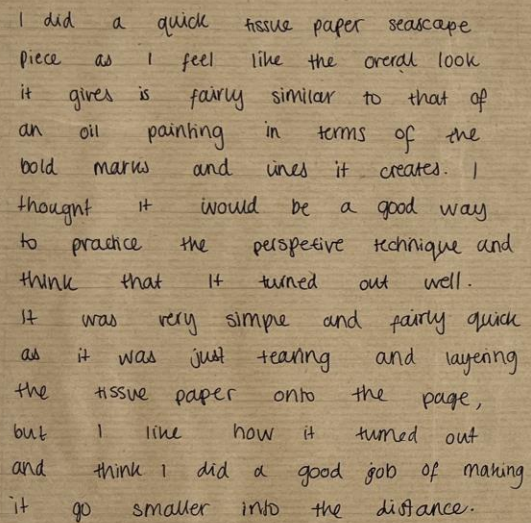 I did a quick tissue paper seascape
piece as I feel like the overal look
it gives is fairly similar to that of
an oil painting in terms of the
bold marks and lines it creates. I
thought it would be a good way
to practice the perspetive technique and
think that it turned out well.
It was very simple and fairly quick
as it was just tearing and layering
the tissue paper onto the page,
but I like how it turned out
and think I did a good job of making
it go smaller into the distance.